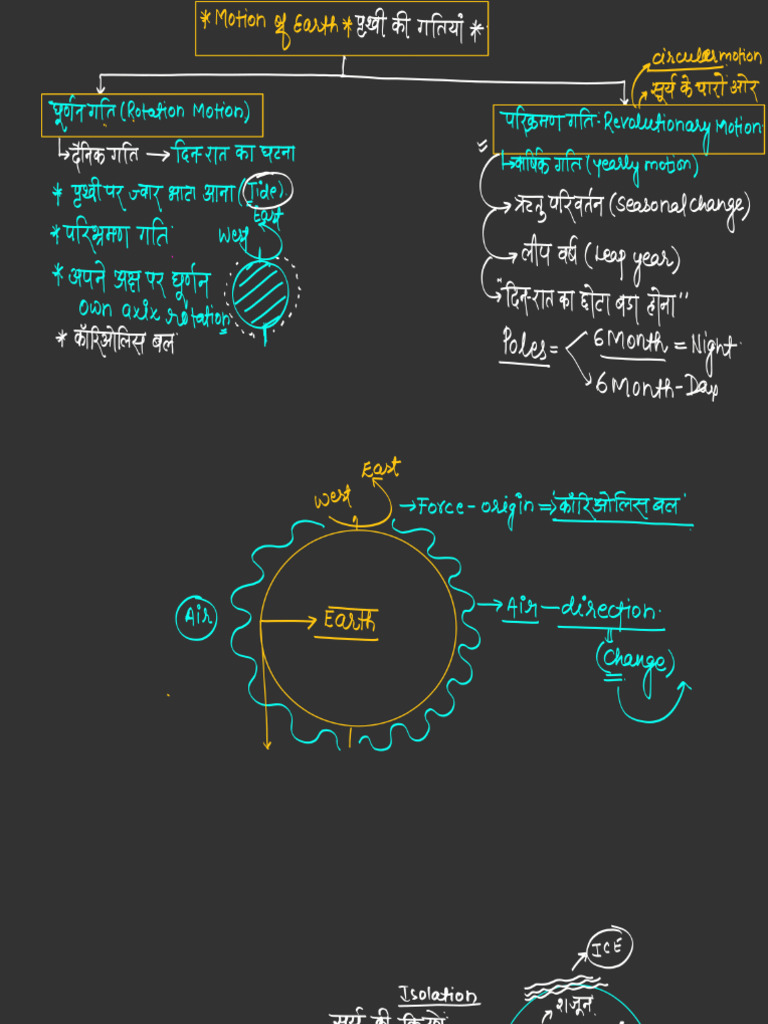 * Motion of Earth * पृथ्वी की गतियां *
circular motion
सूर्य के चारों ओर
घूर्णन गति (Rotation Motion)
परिक्रमण गति: Revolutionary Motion
दैनिक गति → दिन-रात का घटना
→ वार्षिक गति (yearly motion)
* पृथ्वी पर ज्वार भाटा आना (Tide)
→ ऋतु परिवर्तन (Seasonal change)
East
West
* परिभ्रमण गति
→ लीप वर्ष (Leap year)
* अपने अक्ष पर घूर्णन
own axix rotation
→ "दिन-रात का छोटा बडा होना"
* कॉरिओलिस बल
Poles = 6 Month = Night
6 Month - Day
East
West
→ Force - origin ⇒ 'कॉरिओलिस बल'
Air
Earth
→ Air - direction
(Change)
ICE
Isolation
21 जून
सूर्य की किरणे